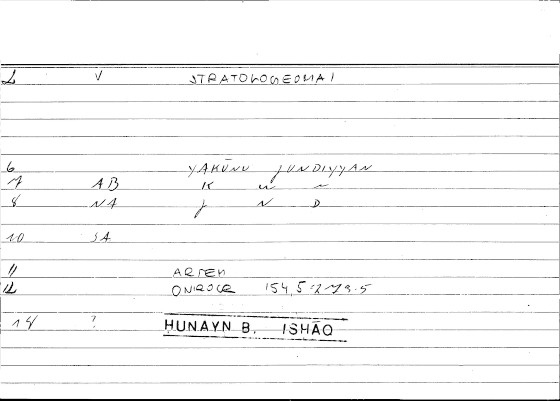 1 V STRATOLOGEOMAI
6 YAKŪNU JUNDIYYAN
7 AB K W N
8 NA J N D
10 SA
11 ARTEM
12 ONIROCR 154,5-279.5
14 ? HUNAYN B. ISHĀQ